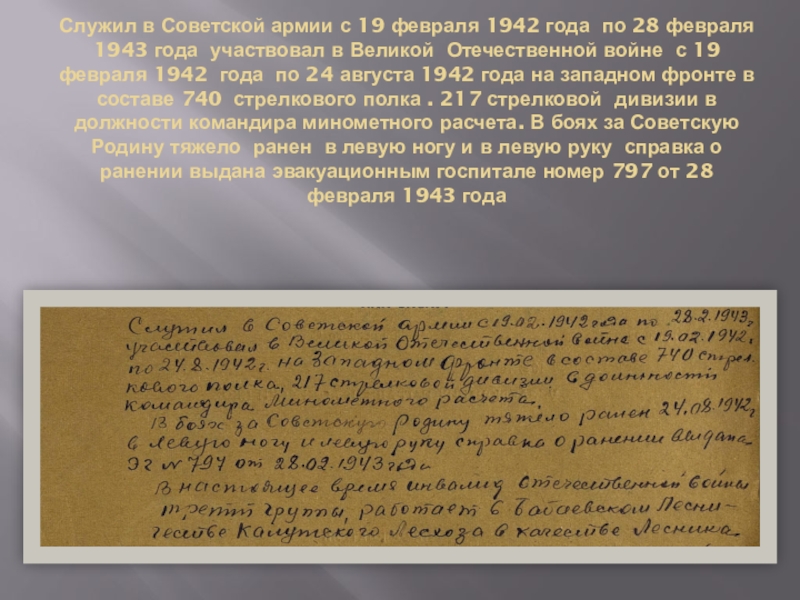 Служил в Советской армии с 19 февраля 1942 года по 28 февраля
1943 года участвовал в Великой Отечественной войне с 19
февраля 1942 года по 24 августа 1942 года на западном фронте в
составе 740 стрелкового полка . 217 стрелковой дивизии в
должности командира минометного расчета. В боях за Советскую
Родину тяжело ранен в левую ногу и в левую руку справка о
ранении выдана эвакуационным госпитале номер 797 от 28
февраля 1943 года
Служил в Советской армии с 19.02.1942 года по 28.2.1943г
участвовал в Великой Отечественной войне с 19.02.1942.
по 24.8.1942г. на Западном фронте в составе 740 стрел-
кового полка, 217 стрелковой дивизии в должности
командира Минометного расчета.
В боях за Советскую Родину тяжело ранен 24.08.1942г
в левую ногу и левую руку справка о ранении выдана
ЭГ №797 от 28.02.1943 года
В настоящее время инвалид Отечественной войны
трети группы, работает в Лесни-
честве Калужского Лесхоза в качестве Лесника.